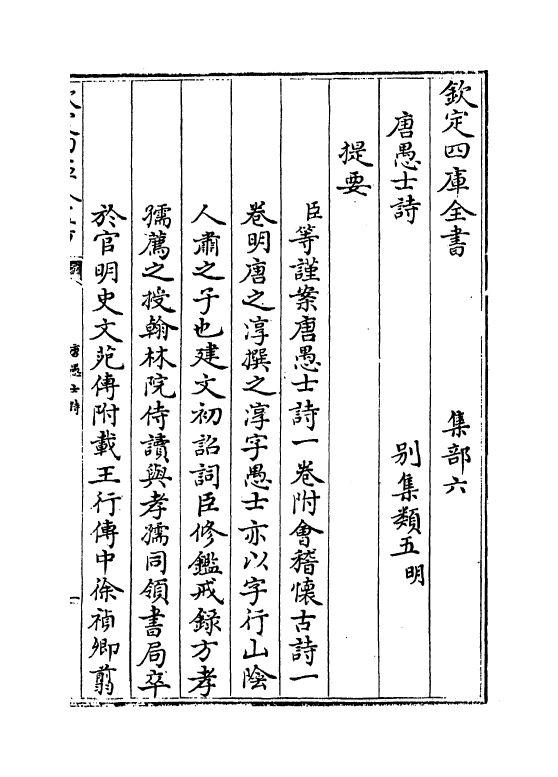 欽定四庫全書　集部六
唐愚士詩　別集類五明
提要
臣等謹案唐愚士詩一卷附會稽懷古詩一
卷明唐之淳撰之淳字愚士亦以字行山陰
人肅之子也建文初詔詞臣修鑑戒錄方孝
孺薦之授翰林院侍讀與孝孺同領書局卒
於官明史文苑傳附載王行傳中徐禎卿翦
唐愚士詩
一